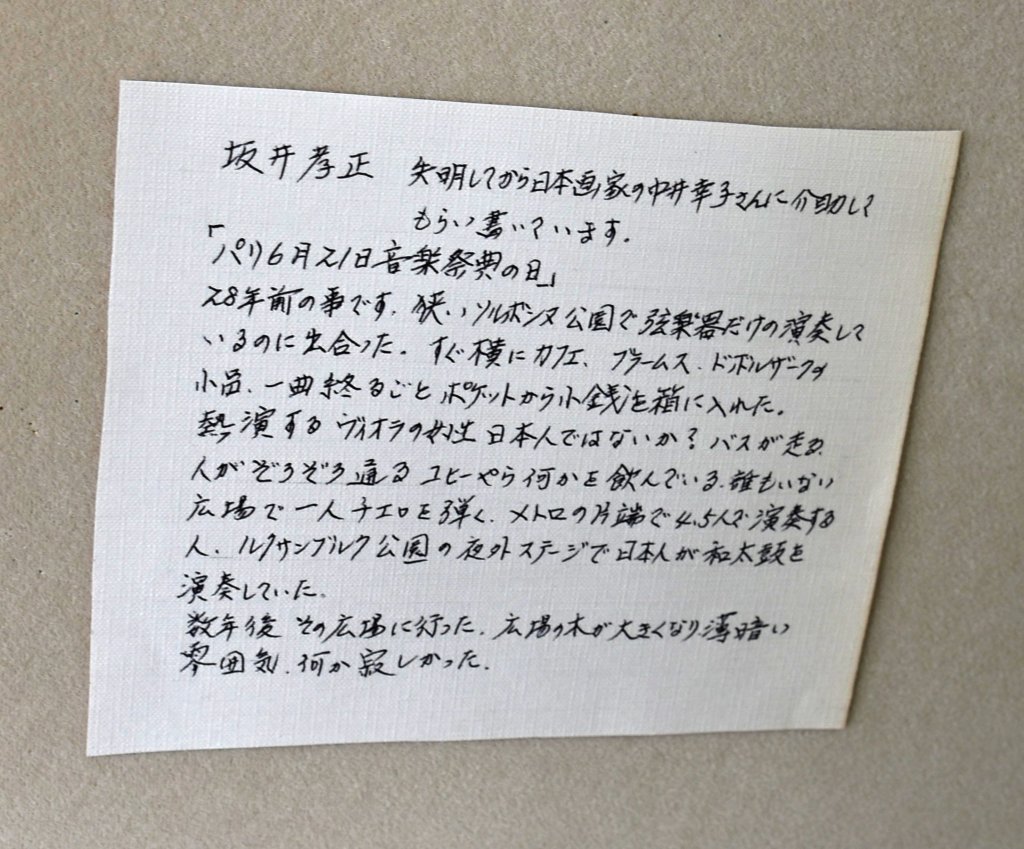 坂井孝正 失明してから日本画家の中井幸子さんに介助して
もらい書いています.
「パリ6月21日音楽祭典の日」
28年前の事です. 狭いソルボンヌ公園で弦楽器だけの演奏して
いるのに出合った. すぐ横にカフェ、ブラームス. ドボルザークの
小品、一曲終るごとポケットから小銭を箱に入れた.
熱演するヴィオラの女性 日本人ではないか? バスが走る.
人がぞろぞろ通る コヒーやら何かを飲んでいる. 誰もいない
広場で一人チェロを弾く. メトロの片端で4.5人で演奏する
人. ルクサンブルク公園の夜外ステージで日本人が和太鼓を
演奏していた.
数年後 その広場に行った. 広場の木が大きくなり. 薄暗い
雰囲気. 何か寂しかった.